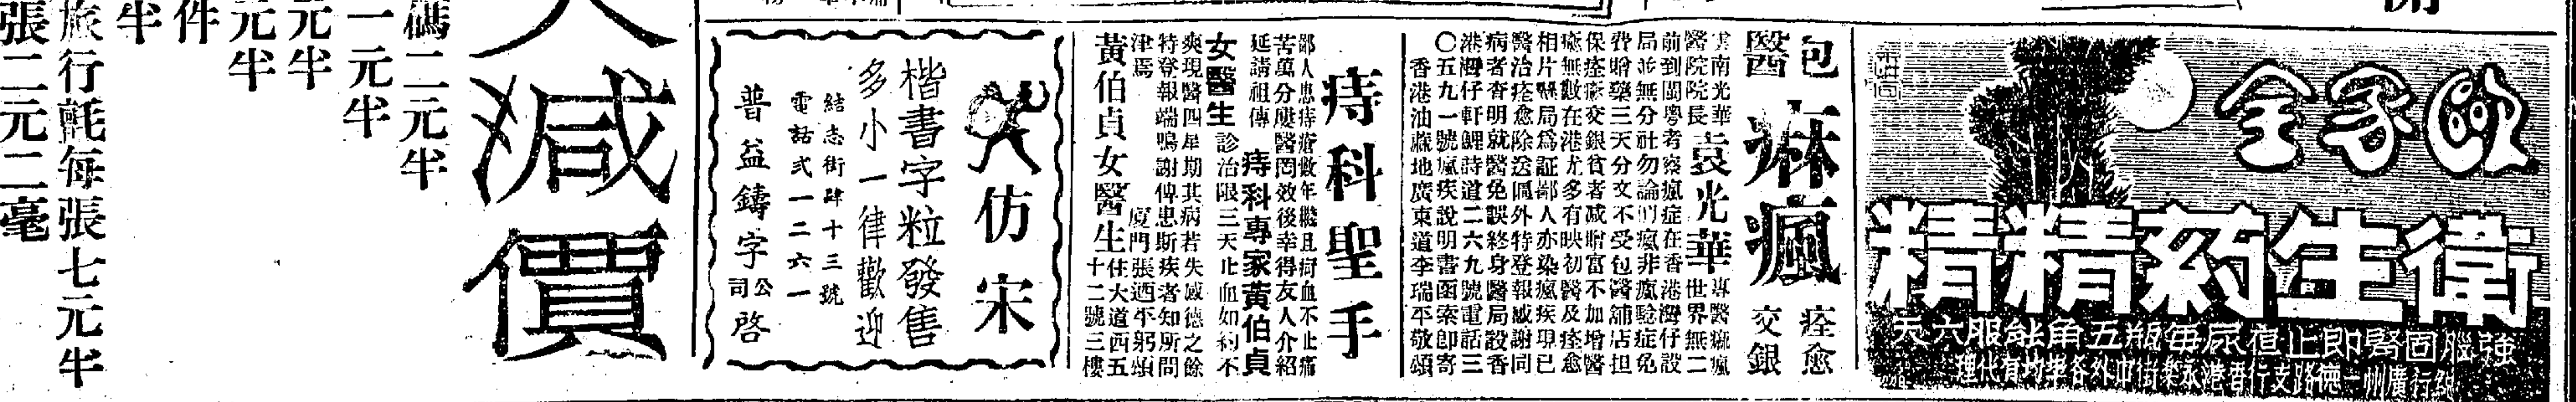 歐家全
衛生葯精精
強腦固腎即止宿尿每瓶五角能服六天
包醫
痳瘋
痊愈交銀
雲南光華醫院院長
袁光華
專醫痳瘋世界無二
前到閩粤考察瘋症在香港灣仔設
局並無分社勿論們瘋非瘋驗症免
費贈藥三天分文不受包醫舖店担
保痊瘉交銀貧者减贈富不加增醫
瘉無數在港尤多有映初醫及痊愈
相片醫局爲証鄙人亦染瘋疾現已
醫治痊愈除送匾外特登報感謝同
病者者明就醫免誤終身醫局設香
港灣仔軒鯉詩道二六九號電話三
〇五九一號瘋疾說明書函索即寄
香港油蔴地廣東道李瑞平敬頌
痔科聖手
鄙人患痔瘡數年膿且痾血不止痛
苦萬分屢醫罔效後幸得友人介紹
延請祖傳痔科專家黃伯貞
女醫生診治限三天止血如約不
爽現醫四星期其病若失感德之餘
特登報端鳴謝俾患斯疾者知所問
津焉 厦門張迺平躬頌
黃伯貞女醫生住大道西五十二號三樓
仿宋
楷書字粒發售
多小一律歡迎
結志街肆十三號
電話弍一二六一
普益鑄字公司啓
大減價
碼二元半
一元半
元半
元半
件
半
旅行氈每張七元半
張二元二毫